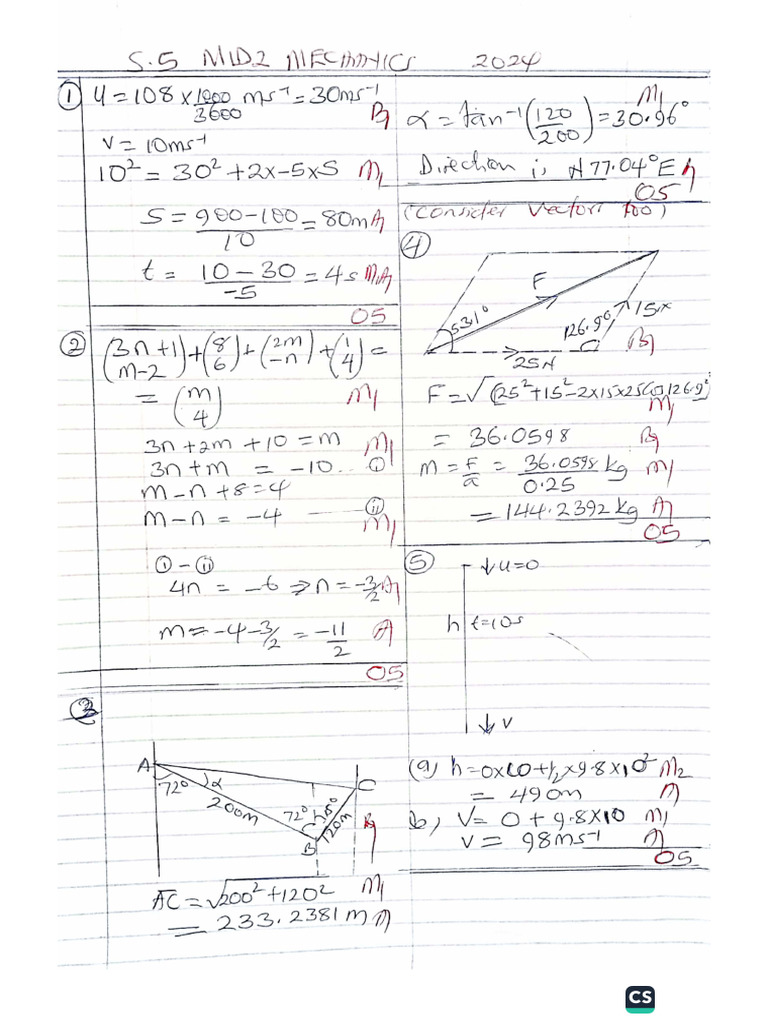 S.5 MID2 MECHANICS 2024
① U = 108 × 1000/3600 ms⁻¹ = 30ms⁻¹ B₁
V = 10ms⁻¹
10² = 30² + 2x-5xS M₁
S = 900-100/10 = 80m A₁
t = 10-30/-5 = 4s M₁A₁
05
② (3n+1 m-2) + (8 6) + (2m -n) + (1 4) =
= (m 4) M₁
3n+2m+10 = m M₁
3n+m = -10 .. ⓘ
m-n+8=4
m-n = -4 ⓘⓘ
M₁
ⓘ - ⓘⓘ
4n = -6 ⇒ n = -3/2 A₁
m = -4-3/2 = -11/2 A₁
05
③
A
72° α
200m
72° 18°
C
120m
B B₁
AC = √200²+120² M₁
= 233.2381 m A₁
α = tan⁻¹(120/200) = 30.96° M₁
Direction is N77.04°E A₁
05
(Consider vectors too)
④
F
53.1° 126.9° 15N
25N B₁
F = √(25²+15²-2x15x25Cos126.9°) M₁
= 36.0598 B₁
m = F/a = 36.0598/0.25 kg M₁
= 144.2392 kg A₁
05
⑤ ↓u=0
h t=10s
↓v
(a) h = 0x10+1/2x9.8x10² M₂
= 490m A₁
(b) V = 0 + 9.8x10 M₁
v = 98ms⁻¹ A₁
05
CS